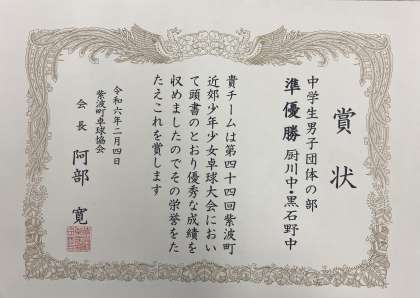 賞状
中学生男子団体の部
準優勝 厨川中・黒石野中
貴チームは第四十四回紫波町
近郊少年少女卓球大会におい
て頭書のとおり優秀な成績を
収めましたのでその栄誉をた
たえこれを賞します
令和六年二月四日
紫波町卓球協会
会長 阿部 寛